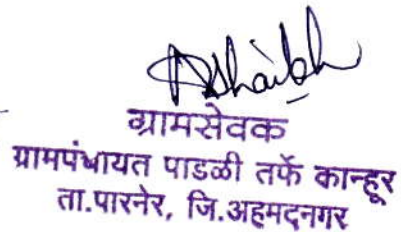 ग्रामसेवक
ग्रामपंचायत पाडळी तर्फे कान्हूर
ता.पारनेर, जि.अहमदनगर